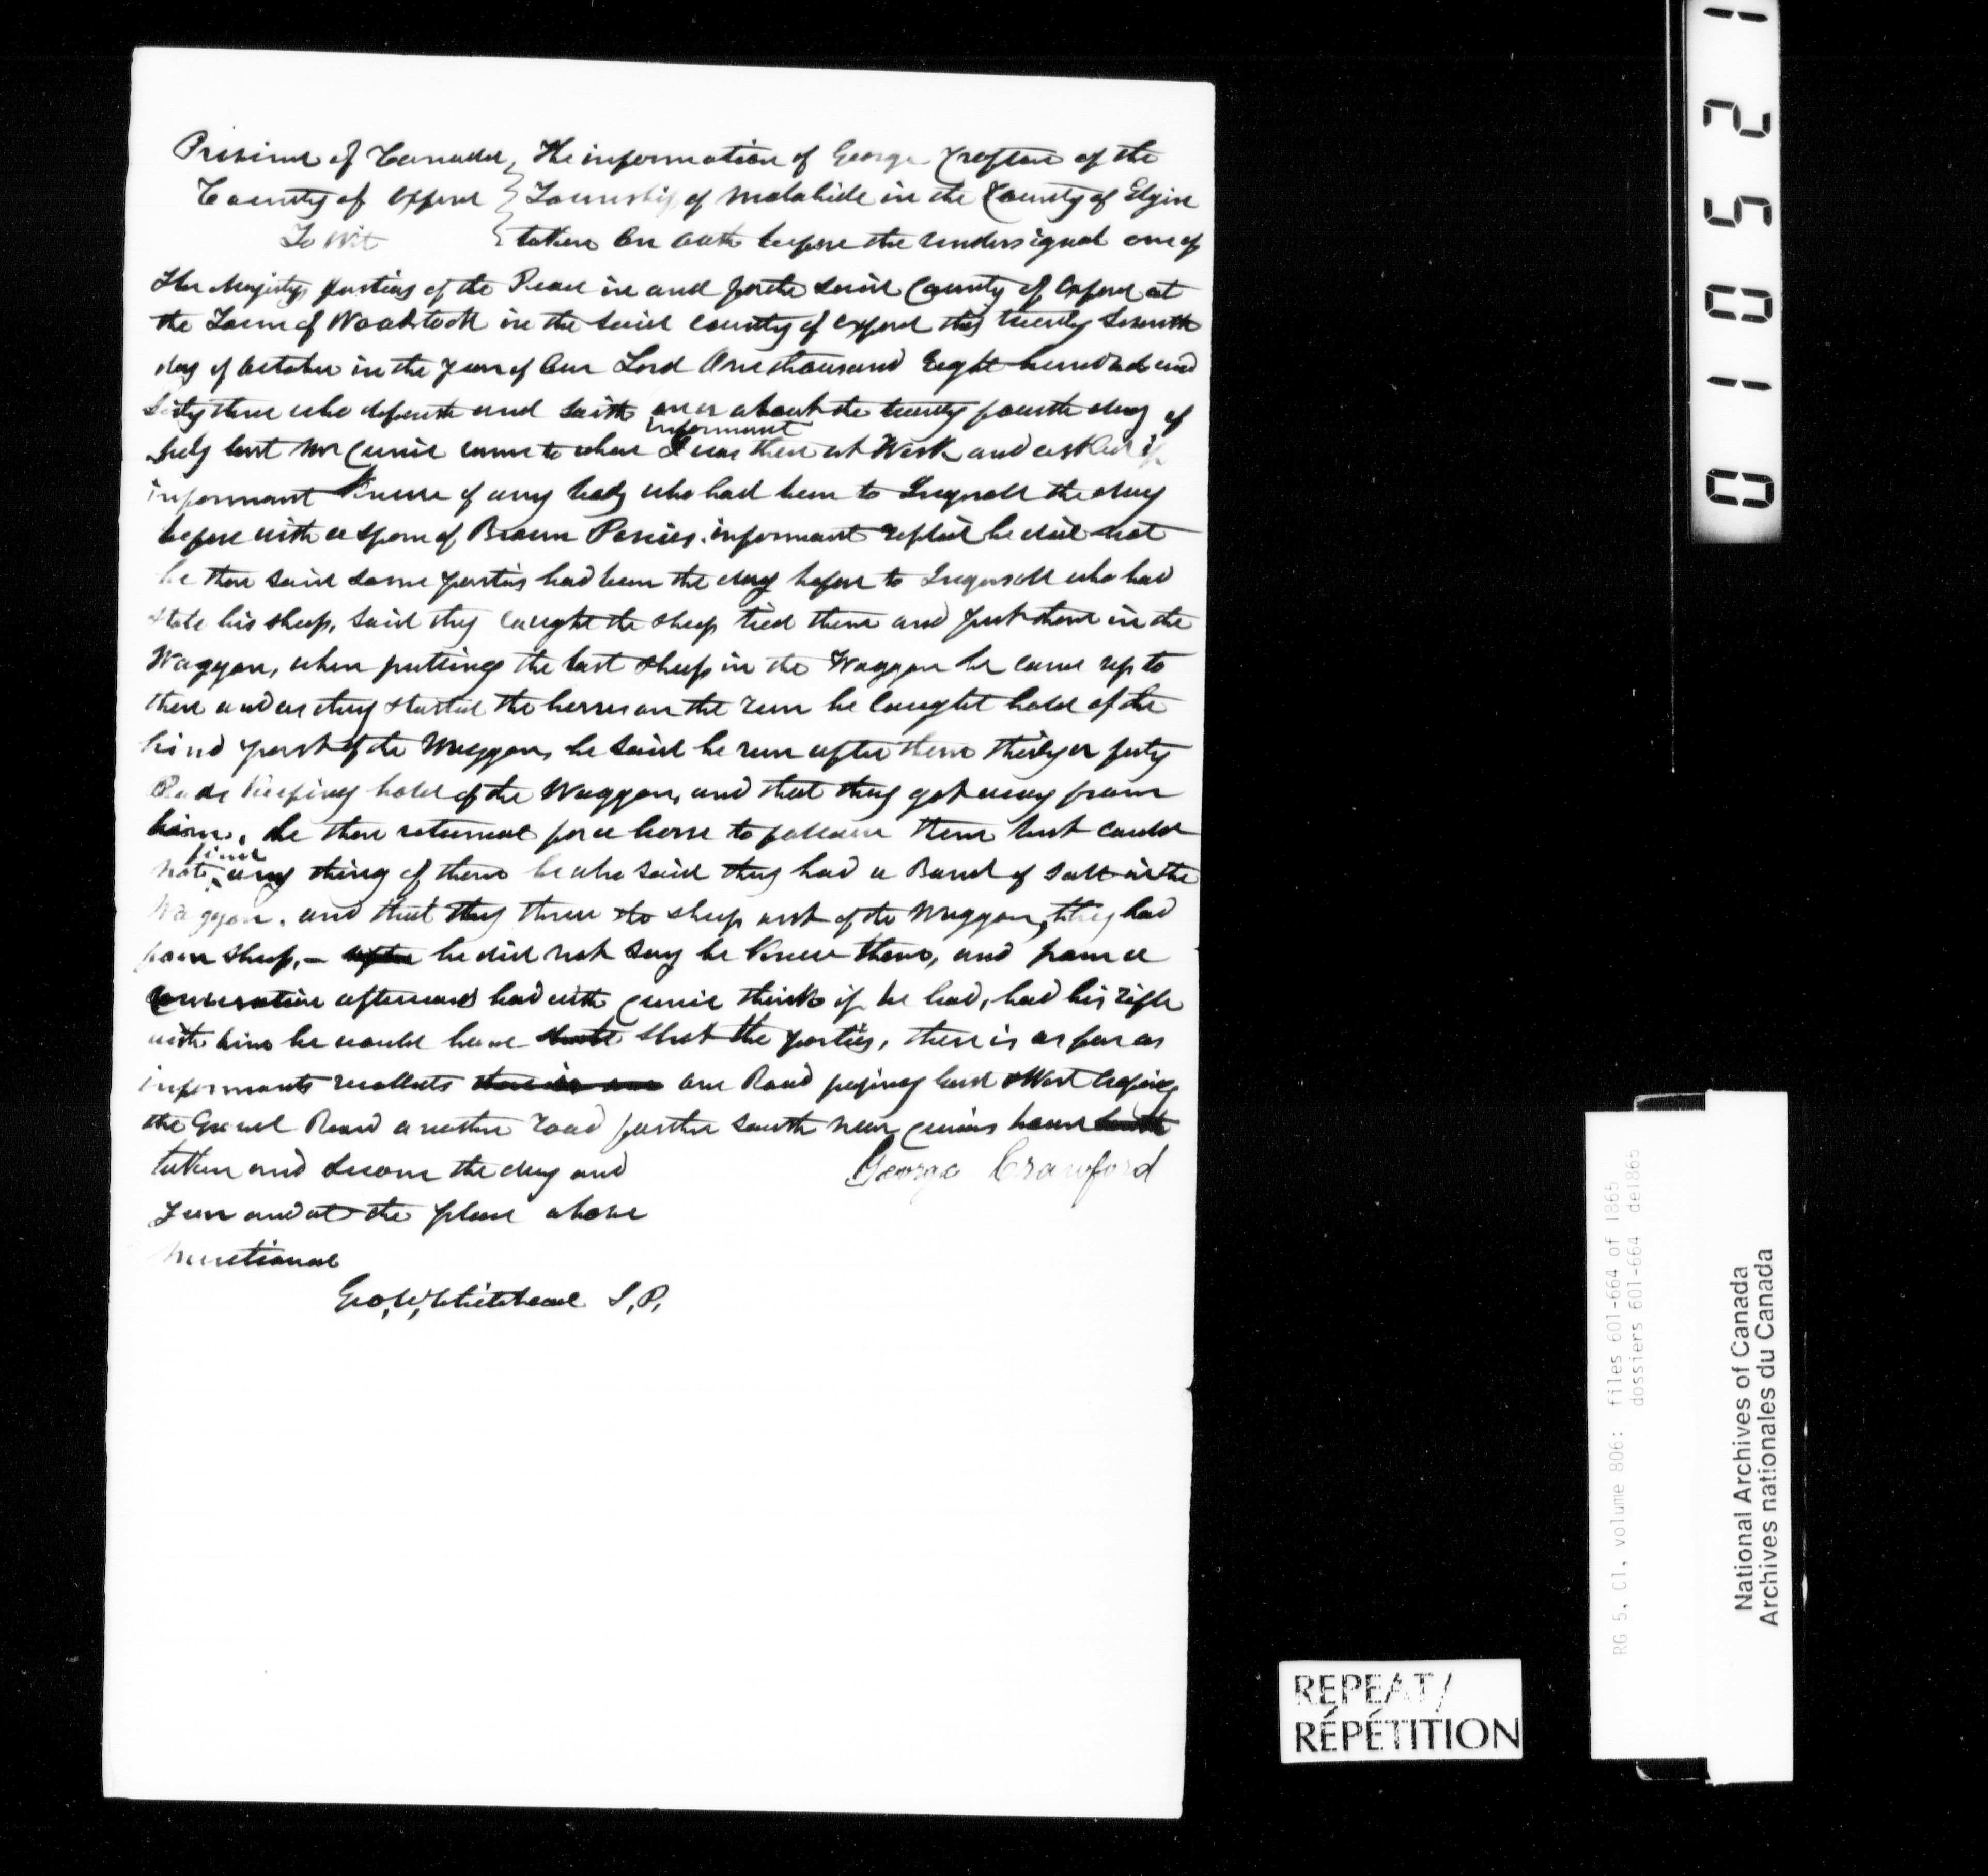 Province of Canada, The information of George Crafton of the
County of Oxford } Township of Malahide in the County of Elgin
To Wit } taken on oath before the undersigned one of
Her Majestys Justices of the Peace in and for the said County of Oxford at
the Town of Woodstock in the said County of Oxford this twenty seventh
day of October in the year of Our Lord One thousand Eight hundred and
Sixty three who deposeth and saith on or about the twenty fourth day of
July last Mr Cunie came to where I informant was there at Work and asked if
informant Knew of any body who had been to Ingersoll the day
before with a span of Brown Ponies. informant replied he did not
he then said some parties had been the day before to Ingersoll who had
stole his sheep, said they caught the sheep tied them and put them in the
Waggon, when putting the last sheep in the Waggon he came up to
them and as they started the horses on the run he caught hold of the
hind part of the Waggon, he said he run after them thirty or forty
Rods Keeping hold of the Waggon, and that they got away from
him, he then returned for a horse to follow them but could
not find any thing of them he also said they had a Barrel of salt in the
Waggon. and that they threw the sheep out of the Waggon, they had
four sheep, - he did not say he Knew them, and from a
Conversation afterward had with Cunie think if he had, had his rifle
with him he would have shot the parties, there is as far as
informants recollects one Road East & West
the Gravel Road another road further South near Cunies house
taken and sworn the day and
Year and at the place above
mentioned
George Crawford
Geo, W, Whitehead J, P,
010521
REPEAT/
RÉPÉTITION
RG 5, C1, volume 806: files 601-664 of 1865
dossiers 601-664 de1865
National Archives of Canada
Archives nationales du Canada